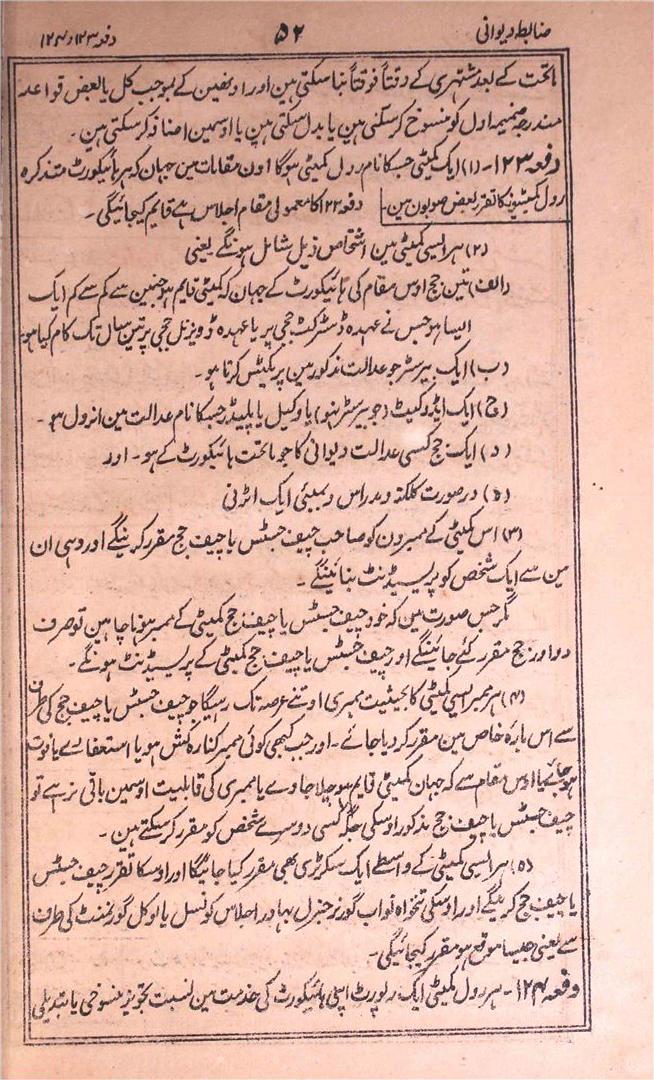 ضابطہ دیوانی
۵۲
دفعہ ۱۲۳ و ۱۲۴
ماتحت کے بعد مشتہری کے وقتاً فوقتاً بنا سکتی ہین اور اونھین کے بموجب کل یا بعض قواعد
مندرجہ ضمیمہ اول کو منسوخ کر سکتی ہین یا بدل سکتی ہین یا اوسمین اضافہ کر سکتی ہین۔
دفعہ ۱۲۳۔ (۱) ایک کمیٹی جسکا نام رول کمیٹی ہوگا اون مقامات مین جہان کہ ہر ہائیکورٹ متذکرہ
رول کمیٹیونکا تقرر بعض صوبون مین۔
دفعہ ۱۲۲ کا معمولی مقام اجلاس ہے قایم کیجائیگی۔
(۲) ہر ایسی کمیٹی مین اشخاص ذیل شامل ہونگے یعنی
(الف) تین جج اوس مقام کی ہائیکورٹ کے جہان کہ کمیٹی قایم ہو جنمین سے کم سے کم ایک
ایسا ہو جس نے عہدہ ڈسٹرکٹ ججی پر یا عہدہ ڈویزنل ججی پر تین سال تک کام کیا ہو
(ب) ایک بیرسٹر جو عدالت مذکور مین پریکٹس کرتا ہو۔
(ج) ایک ایڈوکیٹ (جو بیرسٹر نہو) یا وکیل یا پلیڈر جسکا نام عدالت مین انرول ہو۔
(د) ایک جج کسی عدالت دیوانی کا جو ماتحت ہائیکورٹ کے ہو۔ اور
(ہ) در صورت کلکتہ و مدراس و بمبئی ایک اٹرنی
(۳) اس کمیٹی کے ممبرون کو صاحب چیف جسٹس یا چیف جج مقرر کرینگے اور وہی ان
مین سے ایک شخص کو پریسیڈنٹ بنائینگے۔
مگر جس صورت مین کہ خود چیف جسٹس یا چیف جج کمیٹی کے ممبر ہونا چاہین تو صرف
دو اور جج مقرر کئے جائینگے اور چیف جسٹس یا چیف جج کمیٹی کے پریسیڈنٹ ہونگے۔
(۴) ہر ممبر ایسی کمیٹی کا بحیثیت ممبری اوتنے عرصہ تک رہیگا جو چیف جسٹس یا چیف جج کی طرف
سے اس بارۂ خاص مین مقرر کر دیا جائے۔ اور جب کبھی کوئی ممبر کنارہ کش ہو یا استعفا دے یا فوت
ہو جائے یا اوس مقام سے کہ جہان کمیٹی قایم ہو چلا جاوے یا ممبری کی قابلیت اوسمین باقی نرہے تو
چیف جسٹس یا چیف جج مذکور اوسکی جگہ کسی دوسرے شخص کو مقرر کر سکتے ہین۔
(۵) ہر ایسی کمیٹی کے واسطے ایک سکرٹری بھی مقرر کیا جائیگا اور اوسکا تقرر چیف جسٹس
یا چیف جج کرینگے اور اوسکی تنخواہ نواب گورنر جنرل بہادر اجلاس کونسل یا لوکل گورنمنٹ کی طرف
سے یعنی جیسا موقع ہو مقرر کیجائیگی۔
دفعہ ۱۲۴۔ ہر رول کمیٹی ایک رپورٹ اپنی ہائیکورٹ کی خدمت مین نسبت تجویز منسوخی یا تبدیلی